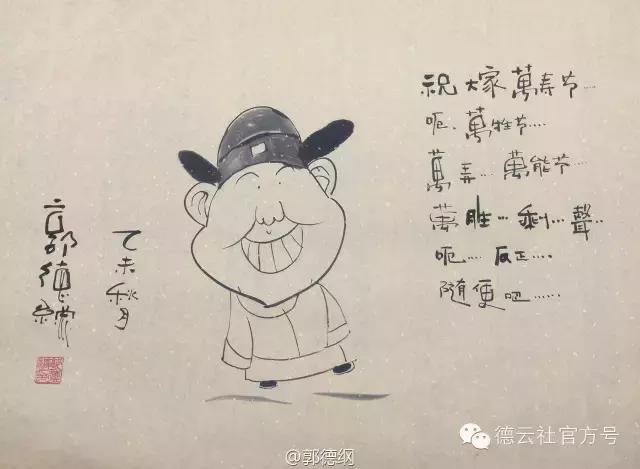 祝大家萬寿节…
呃、萬牲节….
萬弄…萬能节…
萬胜…剩…聲…
呃…. 反正….
随便吧……
乙未秋月
郭德纲
德云社官方号
@郭德纲